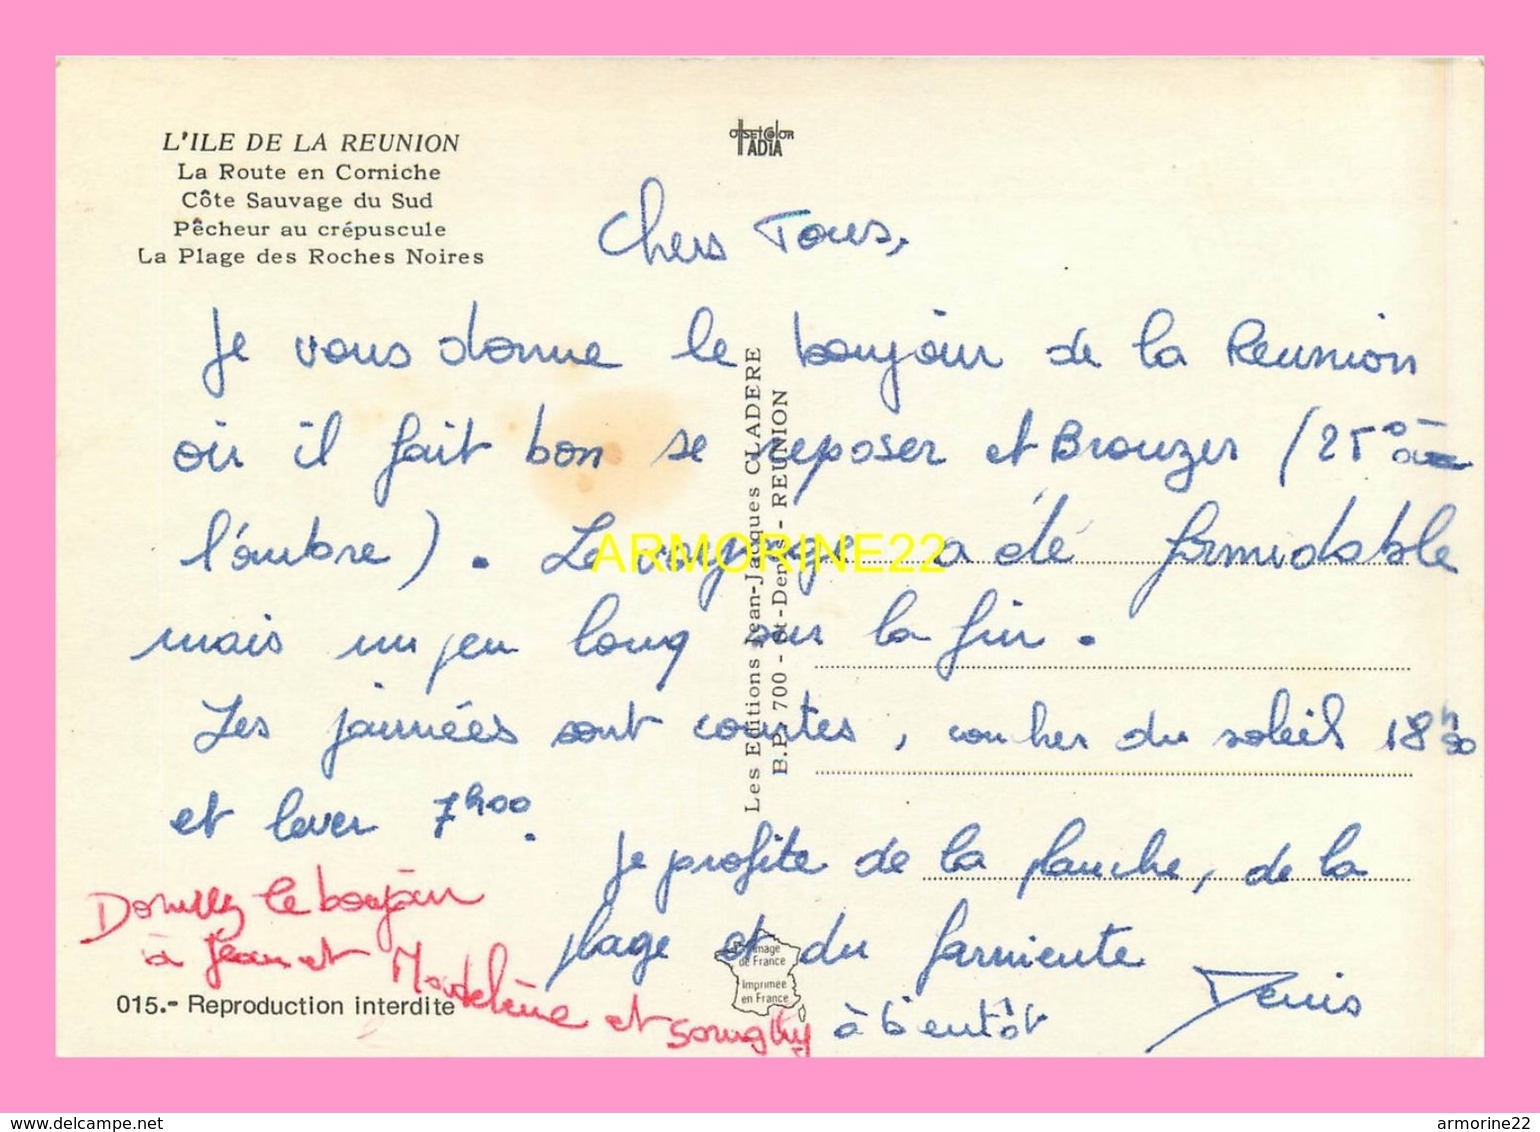 L'ILE DE LA REUNION
La Route en Corniche
Côte Sauvage du Sud
Pêcheur au crépuscule
La Plage des Roches Noires
OffsetColor
IADIA
Chers Tous,
Je vous donne le bonjour de la Reunion
où il fait bon se reposer et Bronzer (25° à
l'ombre). Le voyage a été formidable
mais un peu long sur la fin.
Les journées sont courtes, coucher du soleil 18h30
et lever 7h00.
Je profite de la planche, de la
plage et du farniente
à bientôt Denis
Donnez le bonjour
à Jean et Madelène et
Les Editions Jean-Jacques CLADERE
B.P. 700 - St-Denis - REUNION
ARMORINE22
image
de France
Imprimée
en France
015.- Reproduction interdite
www.delcampe.net
armorine22